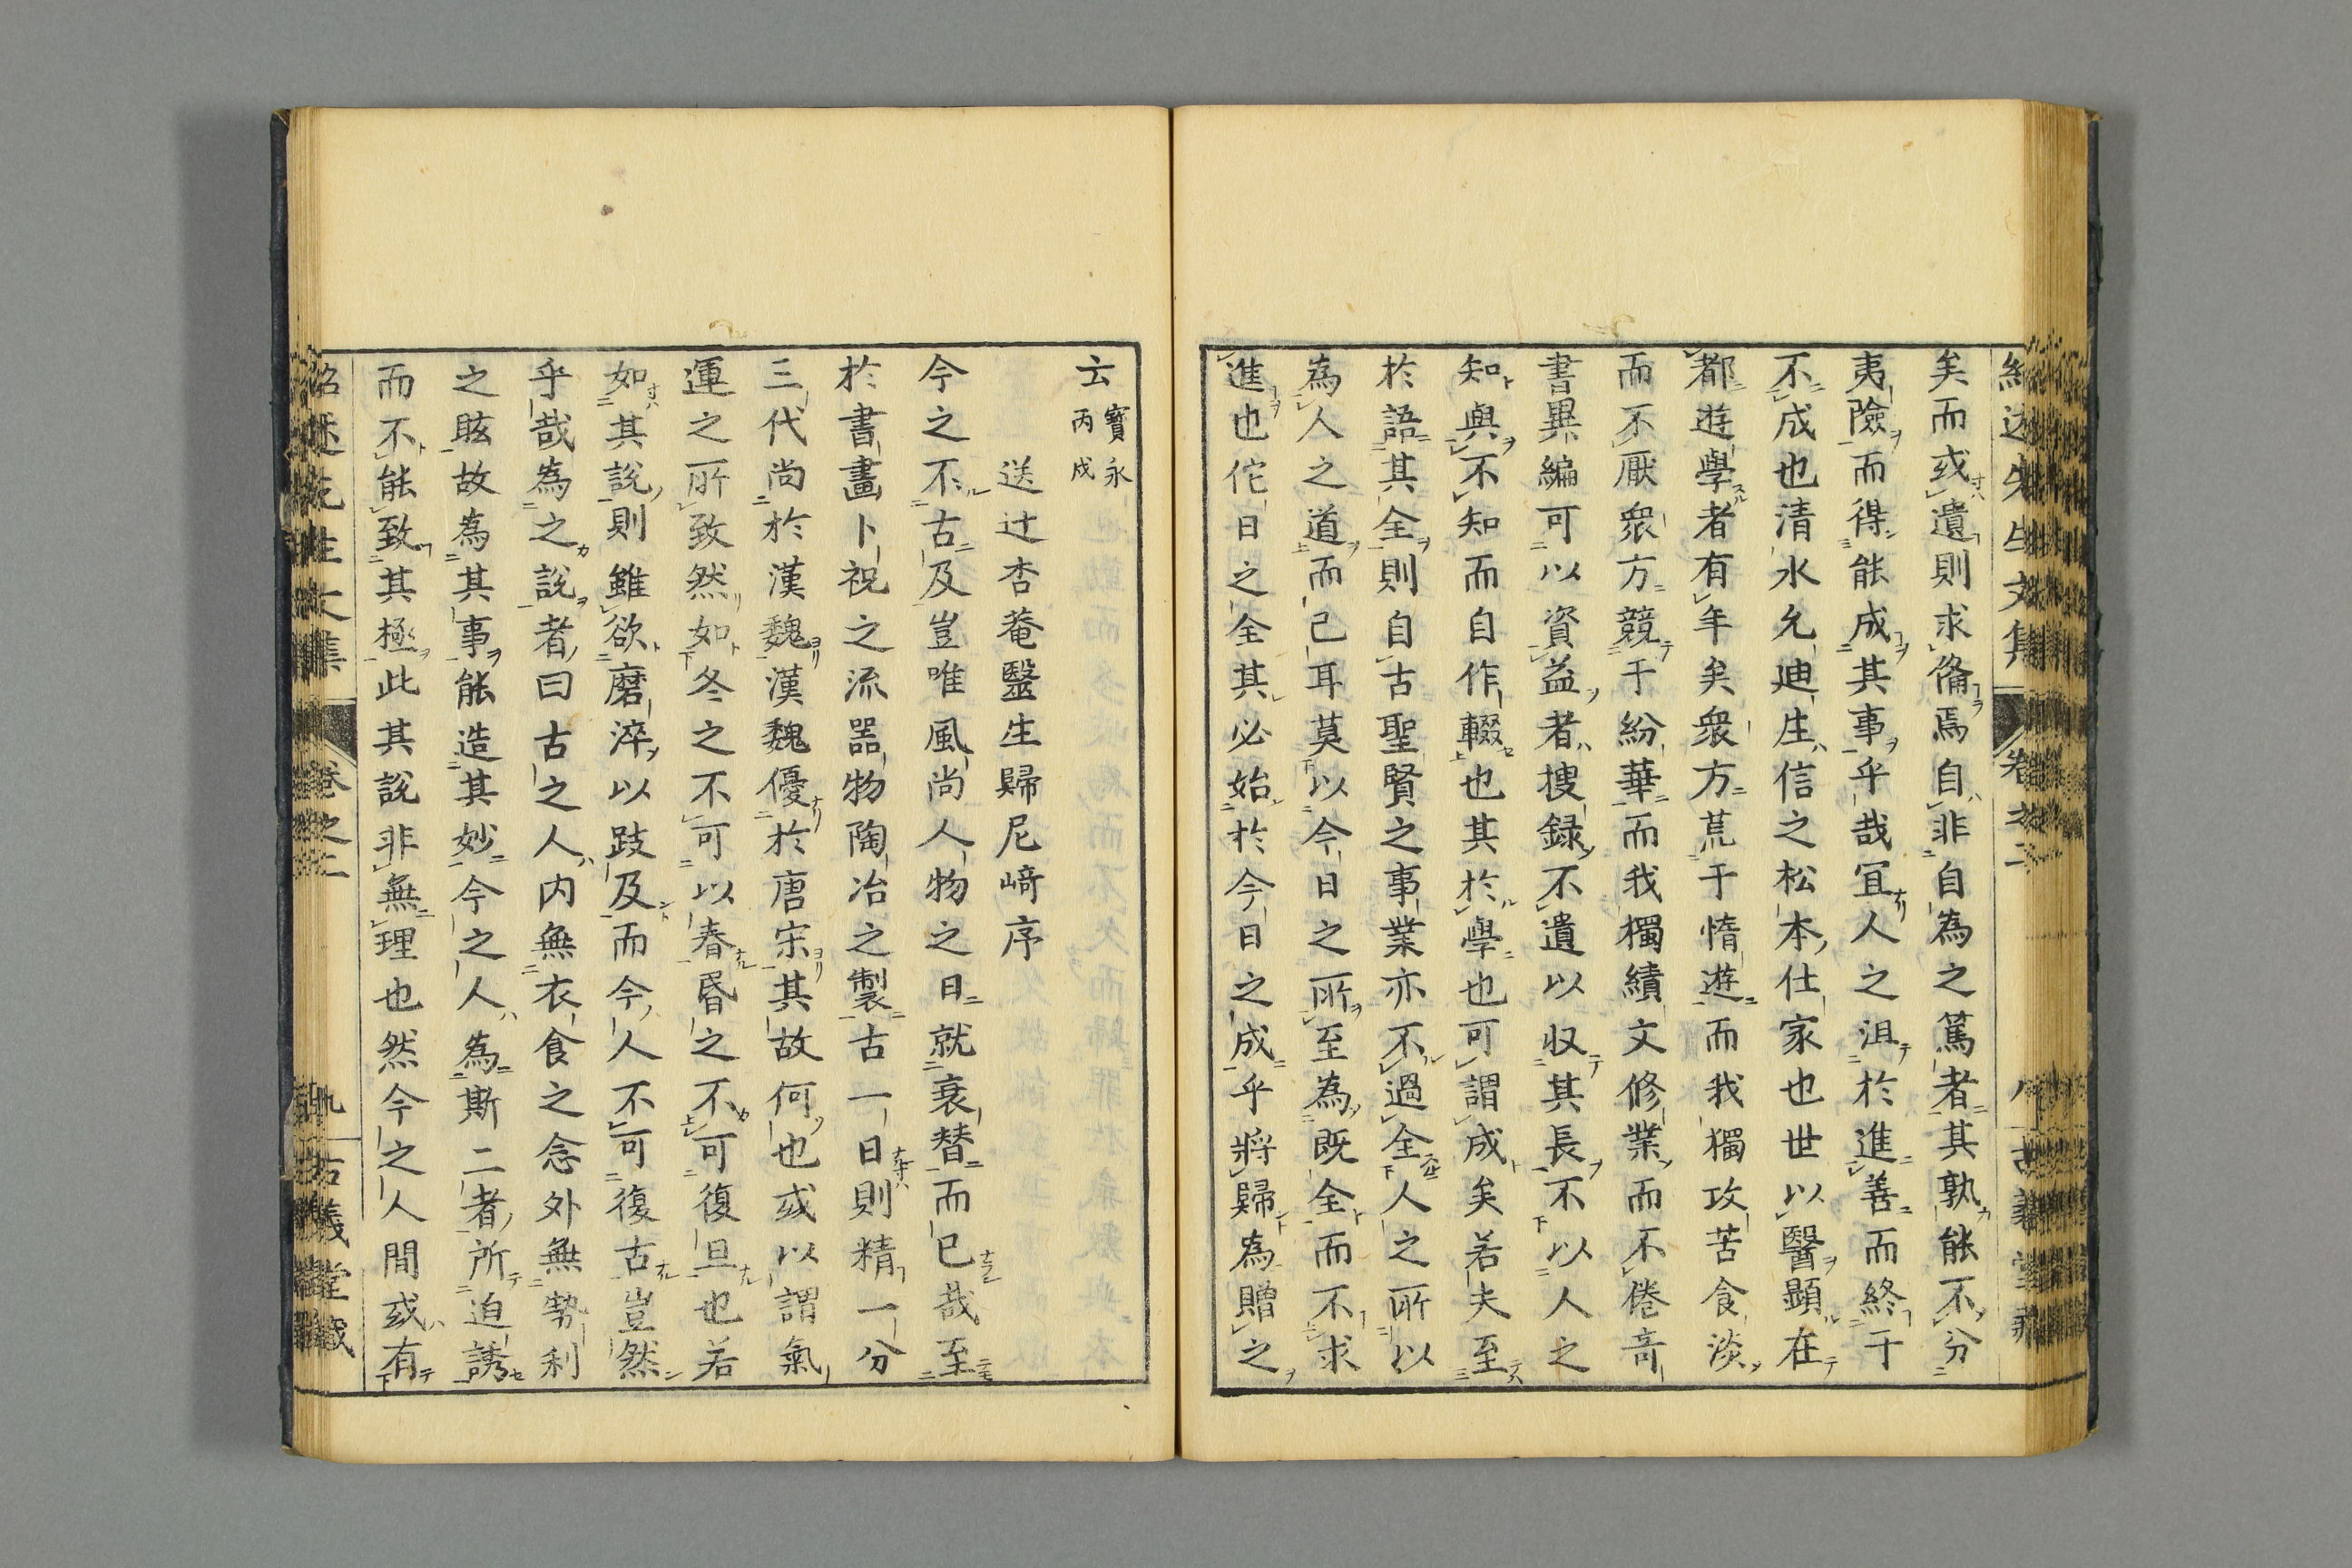 矣而或遺則求備焉自非自為之篤者其孰能不分
夷險而得能成其事乎哉宜人之沮於進善而終于
不成也清水允迪生信之松本仕家也世以醫顯在
都遊學者有年矣衆方荒于惰遊而我獨攻苦食淡
而不厭衆方競于紛華而我獨績文修業而不倦奇
書異編可以資益者搜録不遺以収其長不以人之
知與不知而自作輟也其於學也可謂成矣若夫至
於語其全則自古聖賢之事業亦不過全人之所以
為人之道而已耳莫以今日之所至為既全而不求
進也佗日之全其必始於今日之成乎將歸為贈之
云寳永丙戌
送辻杏菴醫生歸尼﨑序
今之不古及豈唯風尚人物之日就衰替而已哉至
於書畫卜祝之流器物陶冶之製古一日則精一分
三代尚於漢魏漢魏優於唐宋其故何也或以謂氣
運之所致然如冬之不可以春昏之不可復旦也若
如其說則雖欲磨淬以跂及而今人不可復古豈然
乎哉為之說者曰古之人内無衣食之念外無勢利
之眩故為其事能造其妙今之人為斯二者所迫誘
而不能致其極此其說非無理也然今之人間或有
紹述先生文集 卷之二 九 古義堂藏